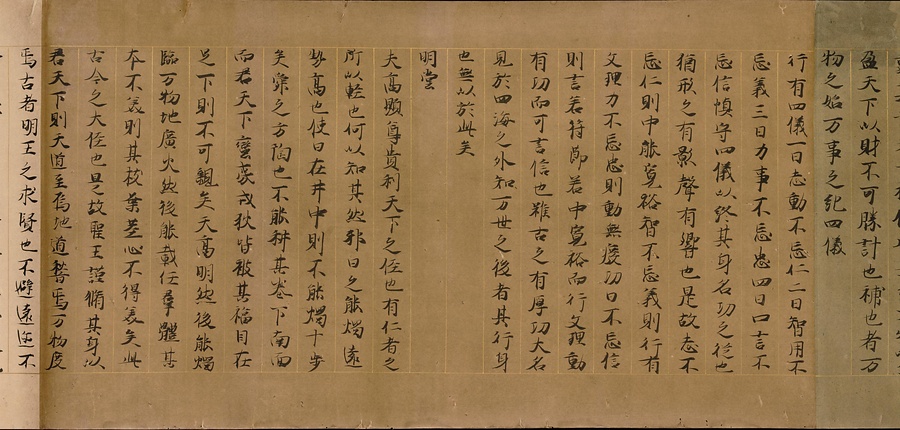 盈天下以財不可勝計也補也者万
物之始万事之紀四儀
行有四儀一曰志動不忘仁二曰智用不
忘義三曰力事不忘忠四曰口言不
忘信慎守四儀以終其身名功之從也
猶形之有影聲有響也是故志不
忘仁則中能寬裕智不忘義則行有
文理力不忘忠則動無廢功口不忘信
則言若符節若中寬裕而行文理動
有功而可言信也雖古之有厚功大名
見於四海之外知万世之後者其行身
也無以於此矣
明堂
夫高顯尊貴利天下之俓也有仁者之
所以輕也何以知其然耶日之能燭遠
勢高也使日在井中則不能燭十步
矣舜之方陶也不能耕其巷下南面
而君天下蠻夷戎狄皆被其福目在
足下則不可視矣天高明然後能燭
臨万物地廣大然後能載任群體其
本不美則其枝葉莖心不得美矣此
古今之大俓也是故聖王謹脩其身以
君天下則天道至焉地道稽焉万物度
焉古者明王之求賢也不避遠近不